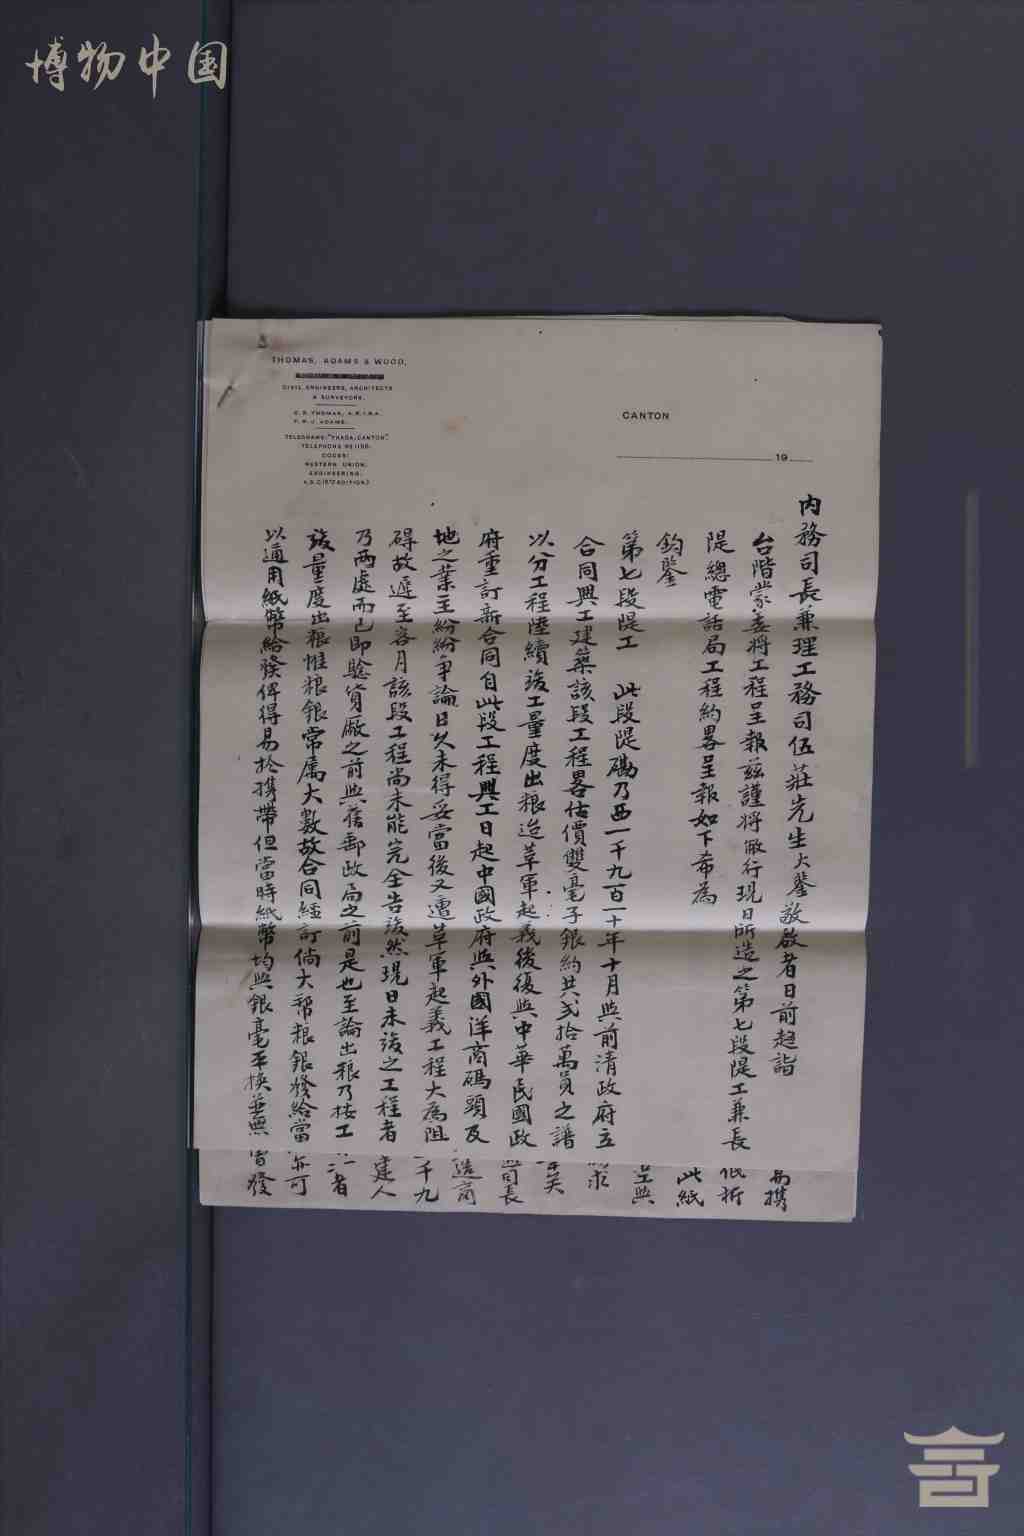 博物中国
THOMAS, ADAMS & WOOD,
CIVIL ENGINEERS, ARCHITECTS
& SURVEYORS.
C. S. THOMAS, A.R.I.B.A.
F. R. J. ADAMS.
TELEGRAMS: "THADA, CANTON".
TELEPHONE Nº 1190.
CODES:
WESTERN UNION,
ENGINEERING,
A.B.C (5TH EDITION.)
CANTON
19
內務司長兼理工務司伍莊先生大鑒敬啟者日前趨詣
台階蒙委將工程呈報茲謹將敝行現日所造之第七段隄工兼長
隄總電話局工程約畧呈報如下希為
鈞鑒
第七段隄工 此段隄磡乃西一千九百一十年十月與前清政府立
合同興工建築該段工程畧估價雙毫子銀約共弍拾萬員之譜
以分工程陸續竣工量度出粮迨革軍起義後復與中華民國政
府重訂新合同自此段工程興工日起中國政府與外國洋商碼頭及
地之業主紛紛爭論日久未得妥當後又遭革軍起義工程大為阻
碍故遲至客月該段工程尚未能完全告竣然現日未竣之工程者
乃兩處而已即騐貨廠之前與舊郵政局之前是也至論出粮乃按工
竣量度出粮惟粮銀常属大數故合同經訂倘大帮粮銀發給當
以通用紙幣給發俾得易於携帶但當時紙幣均與銀毫平換並無
易携
低折
此紙
求
司長
造商
一千九
建人
者
亦可
曾發